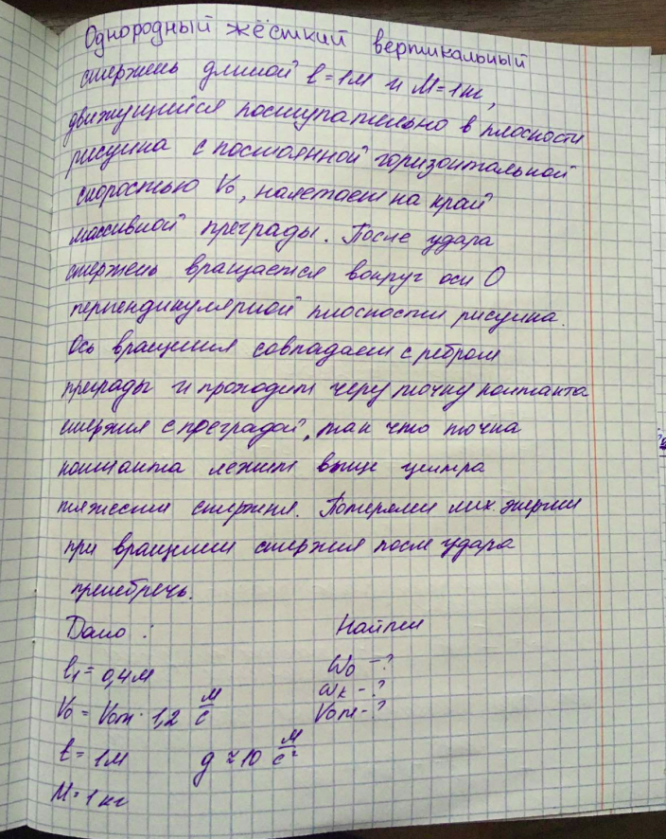 Однородный жёсткий вертикальный
стержень длиной l = 1м и M = 1кг,
движущийся поступательно в плоскости
рисунка с постоянной горизонтальной
скоростью V₀, налетает на край
массивной преграды. После удара
стержень вращается вокруг оси O
перпендикулярной плоскости рисунка.
Ось вращения совпадает с ребром
преграды и проходит через точку контакта
стержня с преградой, так что точка
контакта лежит выше центра
тяжести стержня. Потерями мех. энергии
при вращении стержня после удара
пренебречь.
Дано : Найти
l₁ = 0,4м ω₀ - ?
V₀ = V₀m · 1,2 м/с ωк - ?
V₀m - ?
l = 1м g ≈ 10 м/с²
M = 1кг